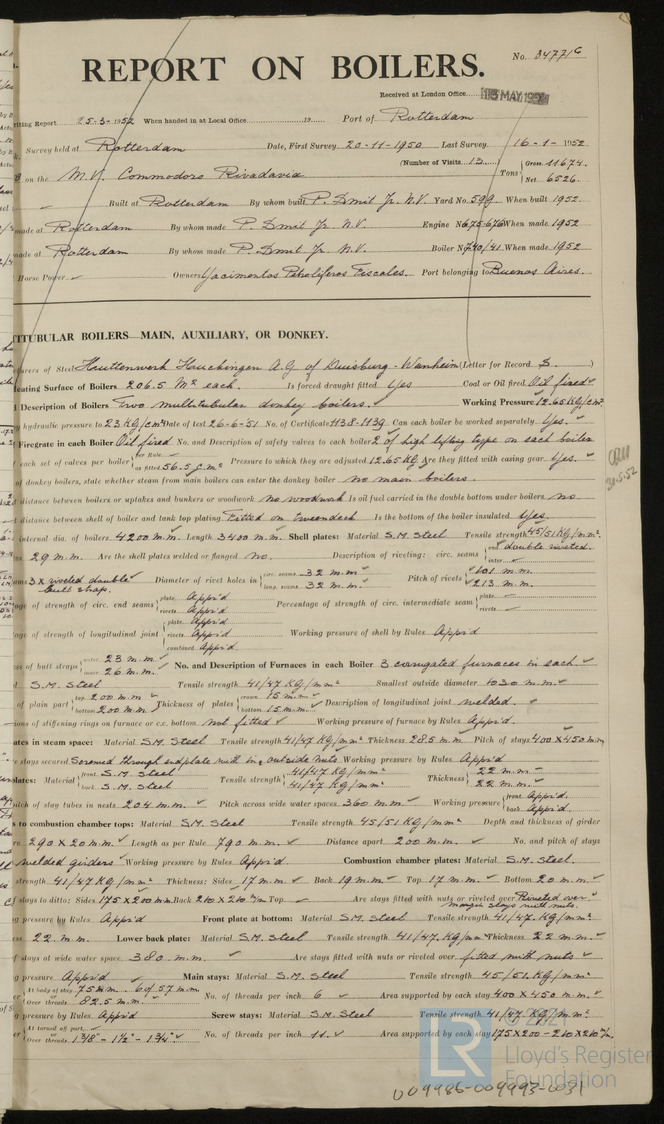 No. 34771G
REPORT ON BOILERS.
Received at London Office 13 MAY 1952
riting Report 25-3-1952 When handed in at Local Office 19 Port of Rotterdam
Survey held at Rotterdam Date, First Survey 20-11-1950 Last Survey 16-1-1952
(Number of Visits 13) Gross 11674.
on the M.V. Commodoro Rivadavia Tons Net 6526.
Built at Rotterdam By whom built P. Smit Jr. N.V. Yard No. 599 When built 1952.
made at Rotterdam By whom made P. Smit Jr. N.V. Engine No 675-676 When made 1952
made at Rotterdam By whom made P. Smit Jr. N.V. Boiler No 740/41 When made 1952
Horse Power Owners Yacimentos Petroliferos Fiscales. Port belonging to Buenos Aires.
TITUBULAR BOILERS—MAIN, AUXILIARY, OR DONKEY.
urers of Steel of Duisburg-Wanheim (Letter for Record S.)
eating Surface of Boilers 206.5 M² each. Is forced draught fitted Yes Coal or Oil fired Oil fired
Description of Boilers Two multitubular donkey boilers. Working Pressure 12.65 KG/cm²
y hydraulic pressure to 23 KG/cm² Date of test 26-6-51 No. of Certificate 1138-1139 Can each boiler be worked separately Yes.
Firegrate in each Boiler Oil fired No. and Description of safety valves to each boiler 2 of high lifting type on each boiler
each set of valves per boiler per Rule as fitted 56.5 c.m² Pressure to which they are adjusted 12.65 KG Are they fitted with easing gear Yes.
of donkey boilers, state whether steam from main boilers can enter the donkey boiler no main boilers.
distance between boilers or uptakes and bunkers or woodwork no woodwork Is oil fuel carried in the double bottom under boilers no
30-5-52
distance between shell of boiler and tank top plating Fitted on tweendeck Is the bottom of the boiler insulated Yes.
internal dia. of boilers 4200 m.m. Length 3400 m.m. Shell plates: Material S.M. Steel Tensile strength 45/51 KG/mm²
29 m.m. Are the shell plates welded or flanged no. Description of riveting: circ. seams end double riveted. inter.
3 x riveted double butt strap. Diameter of rivet holes in circ. seams 32 m.m. long. seams 32 m.m. Pitch of rivets 101 m.m. 213 m.m.
ge of strength of circ. end seams plate App'd rivets App'd Percentage of strength of circ. intermediate seam plate rivets
age of strength of longitudinal joint plate App'd rivets App'd combined App'd Working pressure of shell by Rules App'd
ss of butt straps outer 23 m.m. inner 26 m.m. No. and Description of Furnaces in each Boiler 3 corrugated furnaces in each
S.M. Steel Tensile strength 41/47 KG/mm² Smallest outside diameter 1030 m.m.
of plain part top 200 m.m. bottom 200 m.m. Thickness of plates crown 15 m.m. bottom 15 m.m. Description of longitudinal joint welded.
ions of stiffening rings on furnace or c.c. bottom not fitted Working pressure of furnace by Rules App'd.
ates in steam space: Material S.M. Steel Tensile strength 41/47 KG/mm² Thickness 28.5 m.m. Pitch of stays 400 x 450 m.m.
stays secured Screwed through endplate with in & outside nuts Working pressure by Rules App'd
plates: Material front S.M. Steel back S.M. Steel Tensile strength 41/47 KG/mm² 41/47 KG/mm² Thickness 22 m.m. 22 m.m.
pitch of stay tubes in nests 204 m.m. Pitch across wide water spaces 360 m.m. Working pressure front App'd. back App'd.
s to combustion chamber tops: Material S.M. Steel Tensile strength 45/51 KG/mm² Depth and thickness of girder
290 x 20 m.m. Length as per Rule 790 m.m. Distance apart 200 m.m. No. and pitch of stays
welded girders Working pressure by Rules App'd Combustion chamber plates: Material S.M. Steel.
strength 41/47 KG/mm² Thickness: Sides 17 m.m. Back 19 m.m. Top 17 m.m. Bottom 20 m.m.
f stays to ditto: Sides 175 x 200 m.m. Back 210 x 210 m/m Top Are stays fitted with nuts or riveted over Riveted over margin stays with nuts.
g pressure by Rules App'd Front plate at bottom: Material S.M. Steel Tensile strength 41/47. KG/mm²
ess 22. m.m. Lower back plate: Material S.M. Steel Tensile strength 41/47. KG/mm² Thickness 22 m.m.
f stays at wide water space 380 m.m. Are stays fitted with nuts or riveted over fitted with nuts
g pressure App'd Main stays: Material S.M. Steel Tensile strength 45/51. KG/mm²
At body of stay 75 m.m. 6 of 57 m.m. Over threads 82.5 m.m. No. of threads per inch 6 Area supported by each stay 400 x 450 m.m.
g pressure by Rules App'd Screw stays: Material S.M. Steel Tensile strength 41/47 KG/m.m²
At turned off part Over threads 1 3/8" - 1 1/2" - 1 3/4" No. of threads per inch 11. Area supported by each stay 175x200 - 210x210 m/m
© 2021
LR Lloyd's Register
Foundation
009986-009993-0031